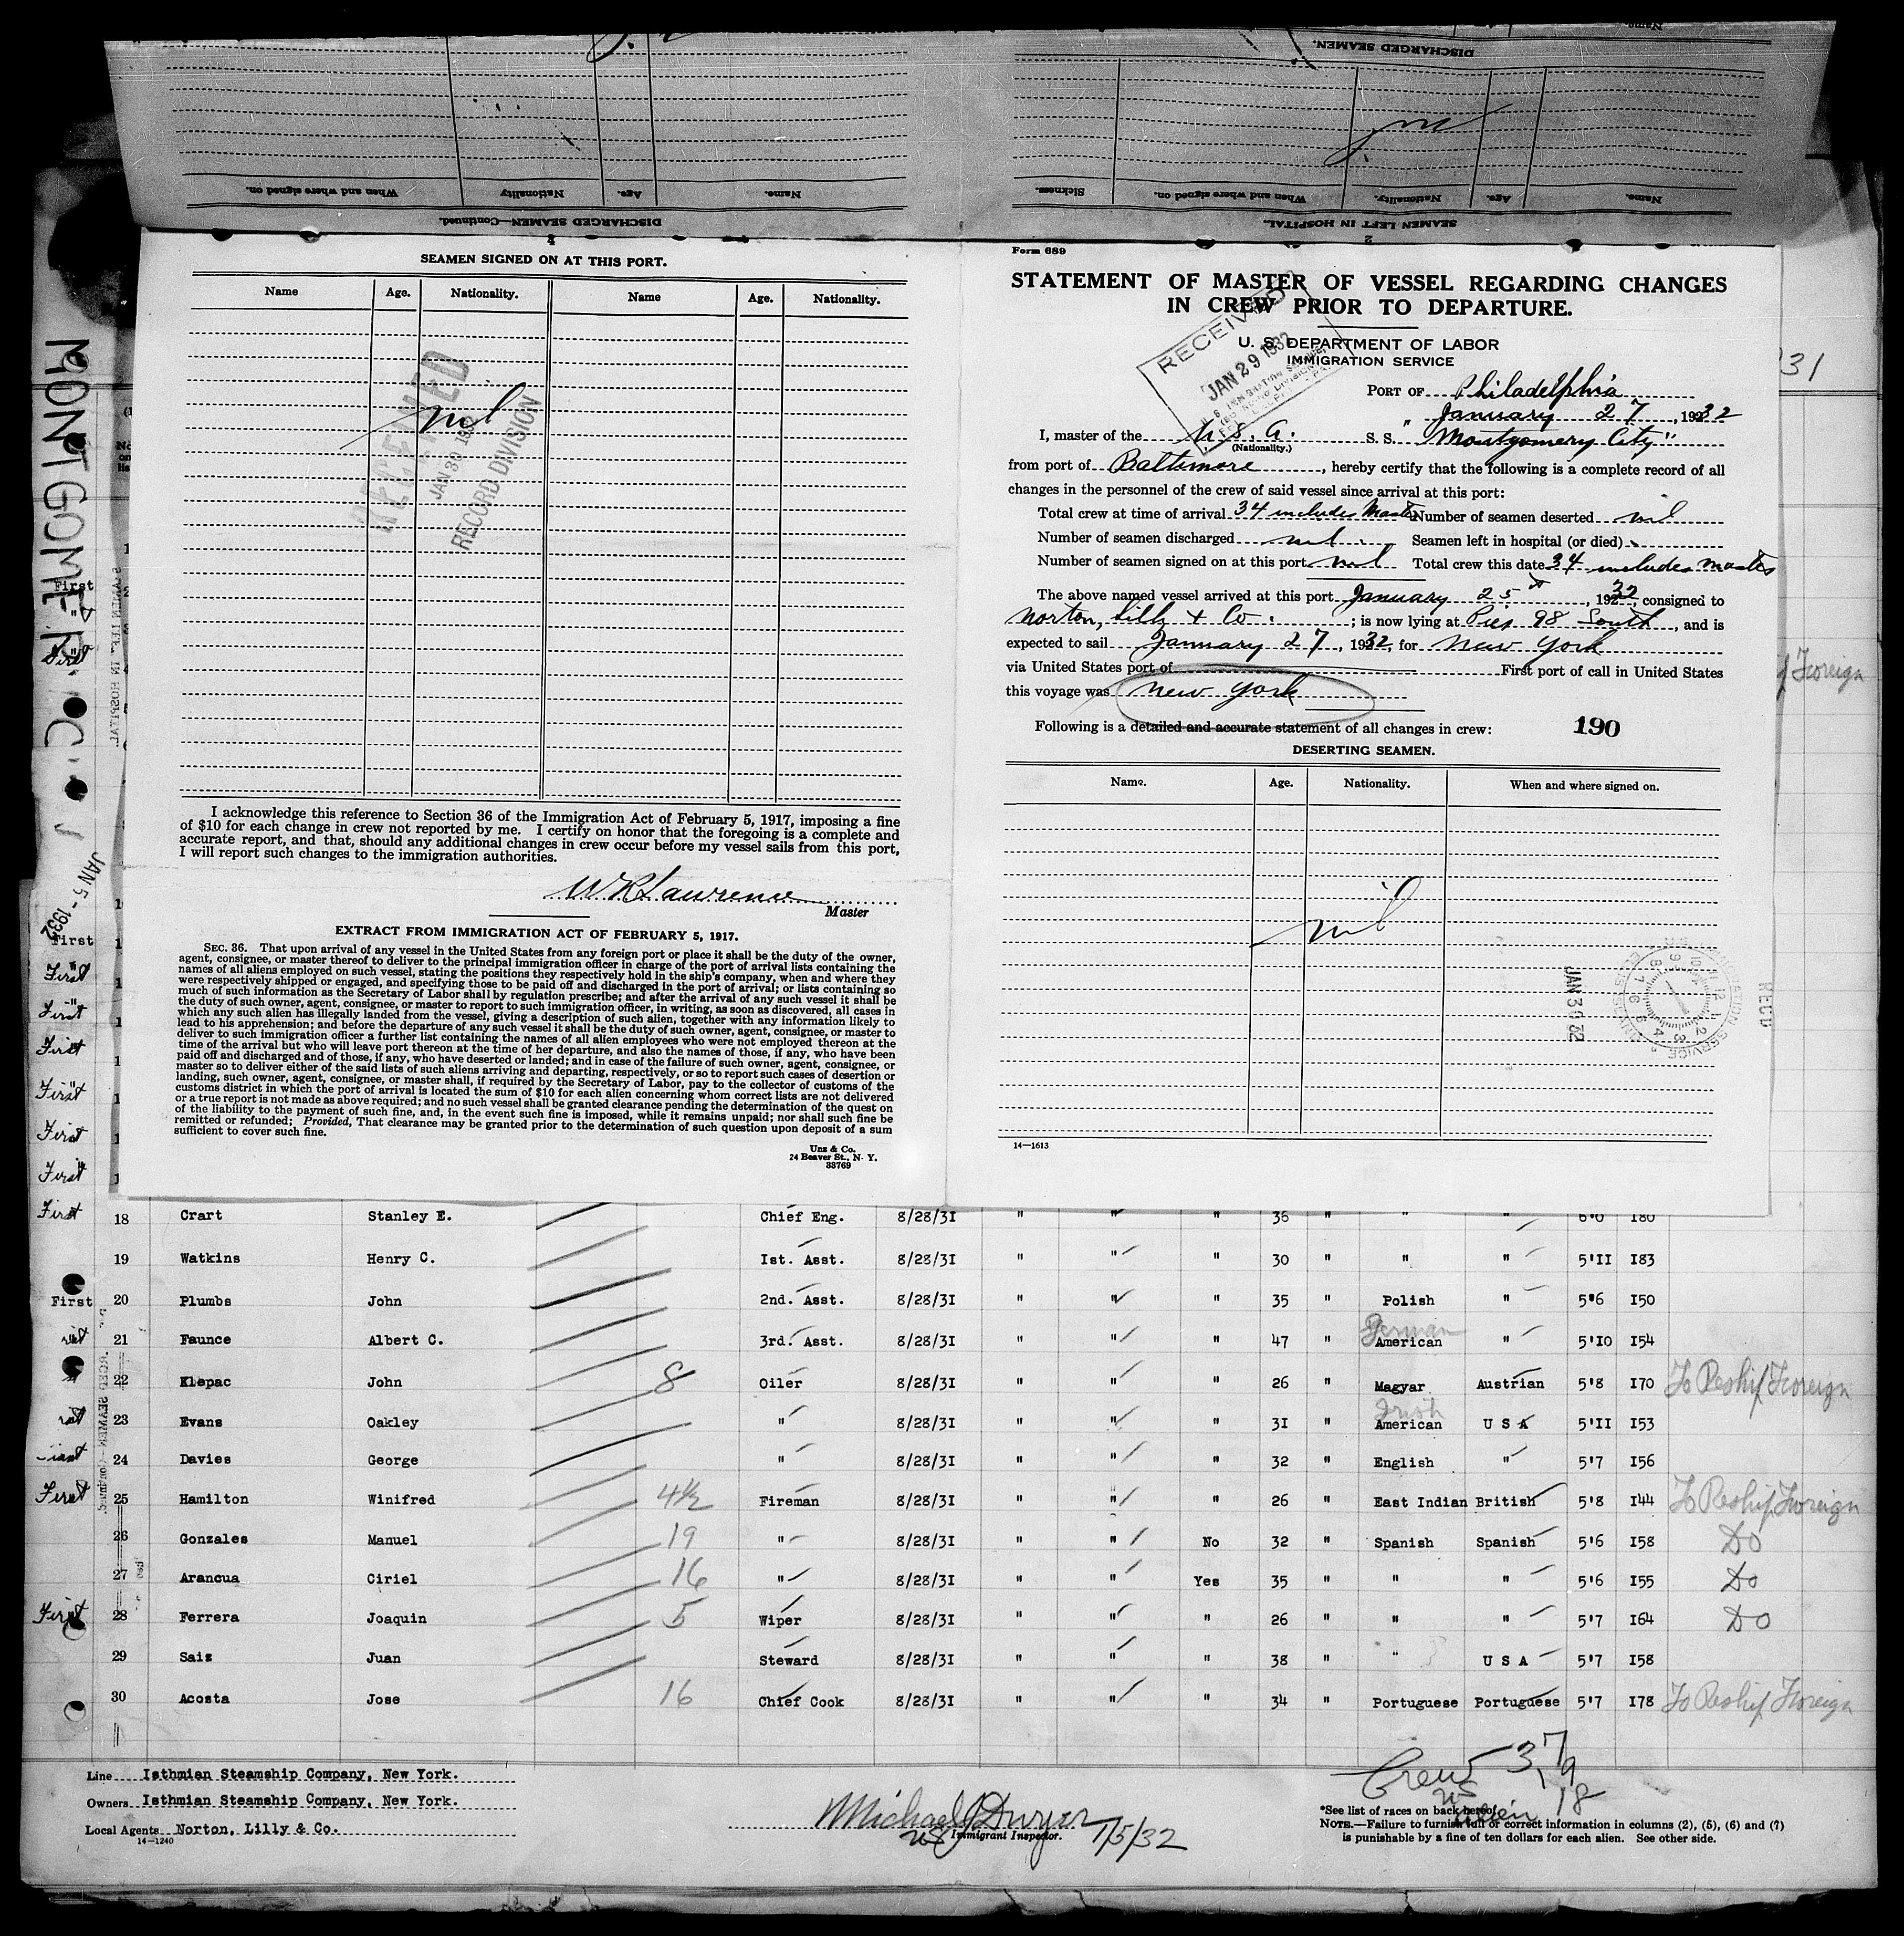 DISCHARGED SEAMEN.
Name.
When and where signed on.
Nationality
Age.
Name.
Sickness.
When and where signed on.
Nationality.
Age.
Name.
DISCHARGED SEAMEN—Continued.
SEAMEN LEFT IN HOSPITAL.
4
2
SEAMEN SIGNED ON AT THIS PORT.
Name Age. Nationality. Name Age. Nationality.
nil
RECEIVED
JAN 30 1932
RECORD DIVISION
I acknowledge this reference to Section 36 of the Immigration Act of February 5, 1917, imposing a fine
of $10 for each change in crew not reported by me. I certify on honor that the foregoing is a complete and
accurate report, and that, should any additional changes in crew occur before my vessel sails from this port,
I will report such changes to the immigration authorities.
W R Lawrence
Master
EXTRACT FROM IMMIGRATION ACT OF FEBRUARY 5, 1917.
SEC. 36. That upon arrival of any vessel in the United States from any foreign port or place it shall be the duty of the owner,
agent, consignee, or master thereof to deliver to the principal immigration officer in charge of the port of arrival lists containing the
names of all aliens employed on such vessel, stating the positions they respectively hold in the ship's company, when and where they
were respectively shipped or engaged, and specifying those to be paid off and discharged in the port of arrival; or lists containing so
much of such information as the Secretary of Labor shall by regulation prescribe; and after the arrival of any such vessel it shall be
the duty of such owner, agent, consignee, or master to report to such immigration officer, in writing, as soon as discovered, all cases in
which any such alien has illegally landed from the vessel, giving a description of such alien, together with any information likely to
lead to his apprehension; and before the departure of any such vessel it shall be the duty of such owner, agent, consignee, or master to
deliver to such immigration officer a further list containing the names of all alien employees who were not employed thereon at the
time of the arrival but who will leave port thereon at the time of her departure, and also the names of those, if any, who have been
paid off and discharged and of those, if any, who have deserted or landed; and in case of the failure of such owner, agent, consignee, or
master so to deliver either of the said lists of such aliens arriving and departing, respectively, or so to report such cases of desertion or
landing, such owner, agent, consignee, or master shall, if required by the Secretary of Labor, pay to the collector of customs of the
customs district in which the port of arrival is located the sum of $10 for each alien concerning whom correct lists are not delivered
or a true report is not made as above required; and no such vessel shall be granted clearance pending the determination of the quest on
of the liability to the payment of such fine, and, in the event such fine is imposed, while it remains unpaid; nor shall such fine be
remitted or refunded; Provided, That clearance may be granted prior to the determination of such question upon deposit of a sum
sufficient to cover such fine.
Unz & Co.
24 Beaver St., N. Y.
33769
Form 689
STATEMENT OF MASTER OF VESSEL REGARDING CHANGES
IN CREW PRIOR TO DEPARTURE.
U. S. DEPARTMENT OF LABOR
IMMIGRATION SERVICE
RECEIVED
JAN 29 1932
PORT OF Philadelphia
January 27, 1932
I, master of the U.S.A. S. S. "Montgomery City"
(Nationality.)
from port of Baltimore, hereby certify that the following is a complete record of all
changes in the personnel of the crew of said vessel since arrival at this port:
Total crew at time of arrival 34 includes Master Number of seamen deserted nil
Number of seamen discharged nil Seamen left in hospital (or died)
Number of seamen signed on at this port nil Total crew this date 34 includes master
The above named vessel arrived at this port January 25, 1932, consigned to
Norton, Lilly & Co.; is now lying at Pier 98 South, and is
expected to sail January 27, 1932, for New York
via United States port of First port of call in United States
this voyage was New York
Following is a detailed and accurate statement of all changes in crew: 190
DESERTING SEAMEN.
Name. Age. Nationality. When and where signed on.
nil
JAN 30 32
RECD
14—1613
MONTGOMERY C
JAN 5 - 1932
31
Foreign
First
First
First
First
First
First
First
First
First
First 18 Crart Stanley E. Chief Eng. 8/28/31 " " " 36 " " " 6'0 180
19 Watkins Henry C. 1st. Asst. 8/28/31 " " " 30 " " " 5'11 183
First 20 Plumbs John 2nd. Asst. 8/28/31 " " " 35 " Polish " 5'6 150
German
21 Faunce Albert C. 3rd. Asst. 8/28/31 " " " 47 " American " 5'10 154
22 Klepac John 8 Oiler 8/28/31 " " " 26 " Magyar Austrian 5'8 170 To Reship Foreign
Irish
23 Evans Oakley " 8/28/31 " " " 31 " American U S A 5'11 153
24 Davies George " 8/28/31 " " " 32 " English " 5'7 156
First 25 Hamilton Winifred 4½ Fireman 8/28/31 " " " 26 " East Indian British 5'8 144 To Reship Foreign
26 Gonzales Manuel 19 " 8/28/31 " " No 32 " Spanish Spanish 5'6 158 Do
27 Arancua Ciriel 16 " 8/28/31 " " Yes 35 " " " 5'6 155 Do
First 28 Ferrera Joaquin 5 Wiper 8/28/31 " " " 26 " " " 5'7 164 Do
29 Saiz Juan Steward 8/28/31 " " " 38 " " U S A 5'7 158
30 Acosta Jose 16 Chief Cook 8/28/31 " " " 34 " Portuguese Portuguese 5'7 178 To Reship Foreign
Line Isthmian Steamship Company, New York.
Owners Isthmian Steamship Company, New York.
Local Agents Norton, Lilly & Co.
14—1240
Michael J Dwyer
Immigrant Inspector. 1/5/32
Crew 37
US 19
alien 18
*See list of races on back hereof.
NOTE.—Failure to furnish full or correct information in columns (2), (5), (6) and (7)
is punishable by a fine of ten dollars for each alien. See other side.